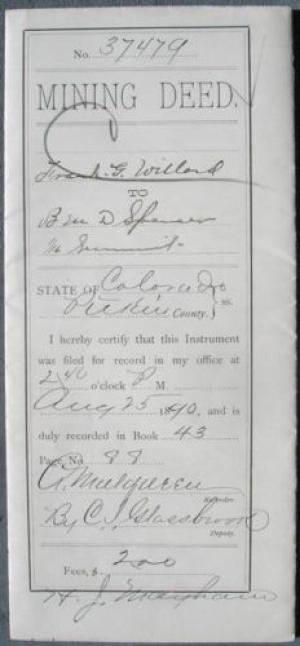 No. 37479
MINING DEED.
Frank G. Willard
TO
B M D Spencer
STATE OF Colorado
Pitkin County. } ss.
I hereby certify that this Instrument
was filed for record in my office at
2 40 o'clock P M
Aug 25 1890, and is
duly recorded in Book 43
Page No 88
Recorder.
By C. J. Glassbrook
Deputy.
Fees, $ 200
H. J. Mayham